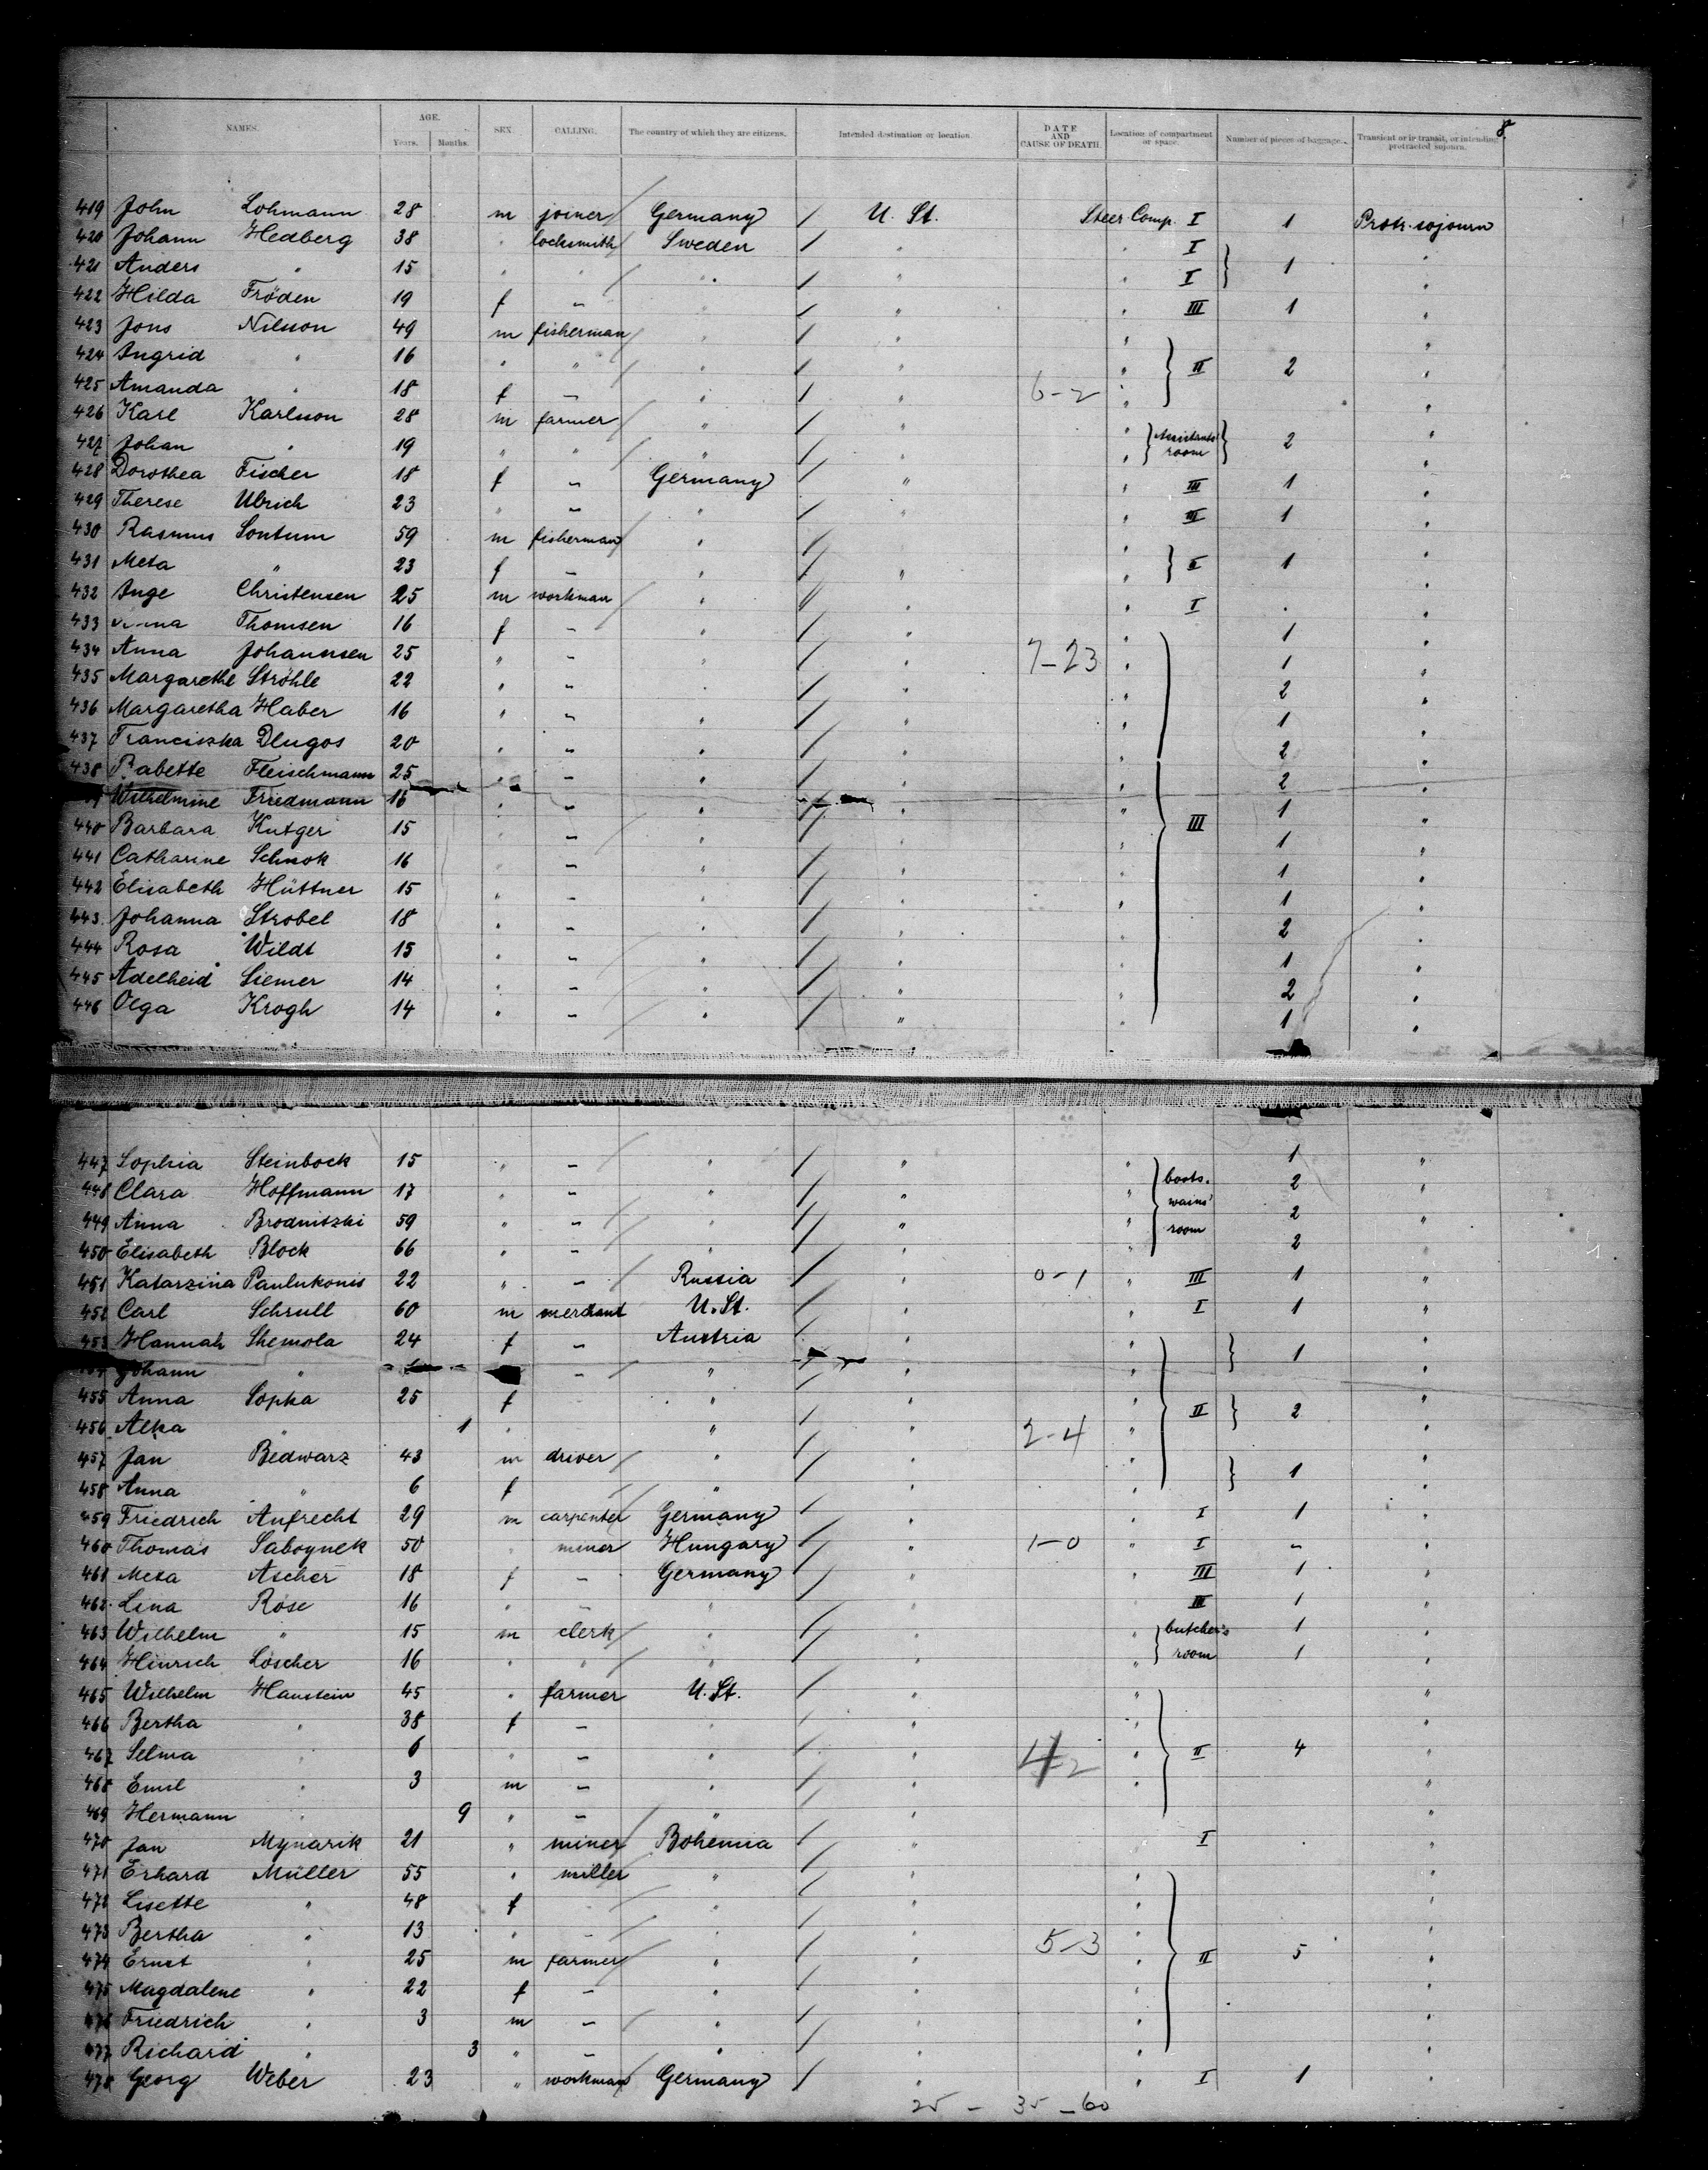 8.
NAMES. AGE. Years. Months. SEX. CALLING. The country of which they are citizens. Intended destination or location. DATE AND CAUSE OF DEATH. Location of compartment or space. Number of pieces of baggage. Transient or in transit, or intending protracted sojourn.
419 John Lohmann 28 m joiner Germany U. St. Steer Comp. I 1 Protr. sojourn
420 Johann Hedberg 38 " locksmith Sweden " " I "
421 Anders " 15 " " " " " I 1 "
422 Hilda Fröden 19 f – " " " III 1 "
423 Jons Nilsson 49 m fisherman " " " "
424 Ingrid " 16 " " " " " II 2 "
425 Amanda " 18 f – " " 6-2 " "
426 Karl Karlsson 28 m farmer " " " Assistants' "
427 Johan " 19 " " " " " room 2 "
428 Dorothea Fischer 18 f – Germany " " III 1 "
429 Therese Ulrich 23 " – " " " III 1 "
430 Rasmus Sontum 59 m fisherman " " "
431 Meta " 23 f – " " " II 1 "
432 Inge Christensen 25 m workman " " " I . "
433 Thomsen 16 f – " " " 1 "
434 Anna Johannsen 25 " – " " 7-23 " 1 "
435 Margarethe Ströhle 22 " – " " " 2 "
436 Margaretha Haber 16 " – " " " 1 "
437 Franciszka Dlugos 20 " – " " " 2 "
438 Babette Fleischmann 25 " – " " " 2 "
Wilhelmine Friedmann 16 " – " " " 1 "
440 Barbara Kutger 15 " – " " " III 1 "
441 Catharine Schnok 16 " – " " " 1 "
442 Elisabeth Hüttner 15 " – " " " 1 "
443 Johanna Strobel 18 " – " " " 2 "
444 Rosa Wildt 15 " – " " " 1 "
445 Adelheid Siemer 14 " – " " " 2 "
446 Olga Krogh 14 " – " " " 1 "
447 Sophia Steinbock 15 " – " " " boats. 1 "
448 Clara Hoffmann 17 " – " " " wains' 2 "
449 Anna Brodnitzki 59 " – " " " room 2 "
450 Elisabeth Block 66 " – " " " 2
451 Katarzina Paulukonis 22 " – Russia " 0-1 " III 1 "
452 Carl Schrull 60 m merchant U. St. " " I 1 "
453 Hannah Shemola 24 f – Austria " " 1 "
Johann " – " " " "
455 Anna Sopka 25 f " " " II 2 "
456 Alka " 1 " " " 2-4 " "
457 Jan Bedwarz 43 m driver " " " 1 "
458 Anna " 6 f – " " " "
459 Friedrich Aufrecht 29 m carpenter Germany " " I 1 "
460 Thomas Saboynek 50 " miner Hungary " 1-0 " I – "
461 Meta Ascher 18 f – Germany " " III 1 "
462 Lina Rose 16 " – " " " III 1 "
463 Wilhelm " 15 m clerk " " " butcher's 1 "
464 Hinrich Löscher 16 " " " " " room 1 "
465 Wilhelm Haustein 45 " farmer U. St. " " "
466 Bertha " 38 f – " " " "
467 Selma " 6 " – " " 4-2 " II 4 "
468 Emil " 3 m – " " " "
469 Hermann " 9 " – " " "
470 Jan Mynarik 21 " miner Bohemia " I . "
471 Erhard Müller 55 " miller " " " "
472 Lisette " 48 f " " " "
473 Bertha " 13 " – " " 5-3 " "
474 Ernst " 25 m farmer " " " II 5 "
475 Magdalene " 22 f – " " " "
476 Friedrich " 3 m – " " " "
477 Richard " 3 " – " " " "
478 Georg Weber 23 " workman Germany " " I 1 "
25 – 35 – 60